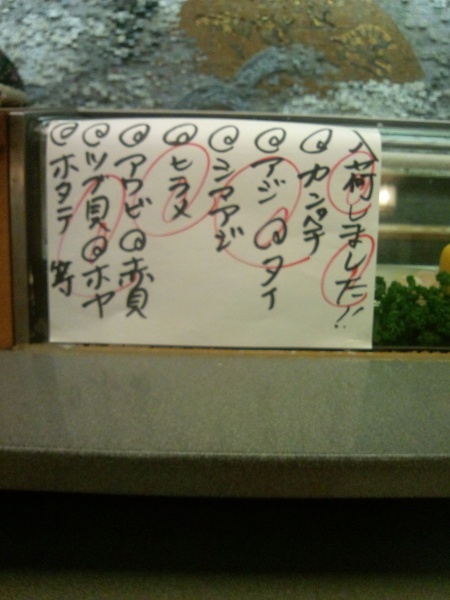 入荷しました!!
@ カンパチ
@ アジ @ タイ
@ シマアジ
@ ヒラメ
@ アワビ @ 赤貝
@ ツブ貝 @ ホヤ
@ ホタテ 等